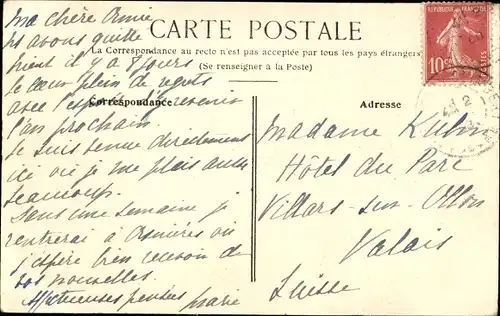 CARTE POSTALE
La Correspondance au recto n'est pas acceptée par tous les pays étrangers
(Se renseigner à la Poste)
Correspondance
Ma chère Amie
avons quitté
il y a 8 jours
le cœur plein de regrets
avec l'espoir d'y revenir
l'an prochain
Je suis venue directement
ici où je me plais aussi
beaucoup.
Dans une semaine je
rentrerai à Asnières où
j'espère bien recevoir de
vos nouvelles.
Affectueuses pensées Marie
Adresse
Madame
Hôtel du Parc
Villars-sur-Ollon
Valais
Suisse
REPUBLIQUE FRANÇAISE
10c